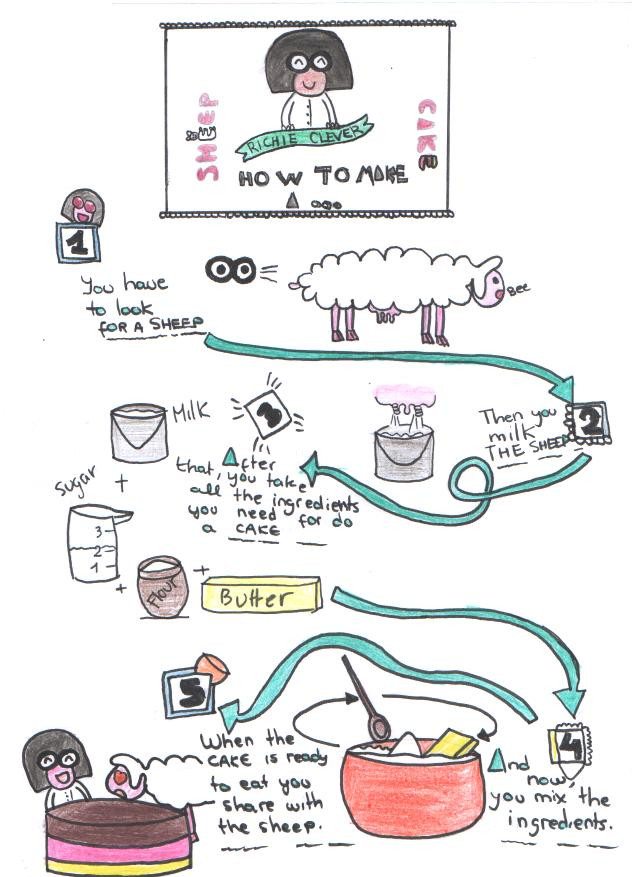 SHEEP
CAKE
RICHIE CLEVER
HOW TO MAKE
A
1
You have
to look
FOR A SHEEP
Bee
2
Then you
milk
THE SHEEP
3
After
that, you take
all the ingredients
you need for do
a CAKE
Milk
+
Sugar
3
2
1
+
Flour
+
Butter
4
And
now,
you mix the
ingredients.
5
When the
CAKE is ready
to eat you
share with
the sheep.